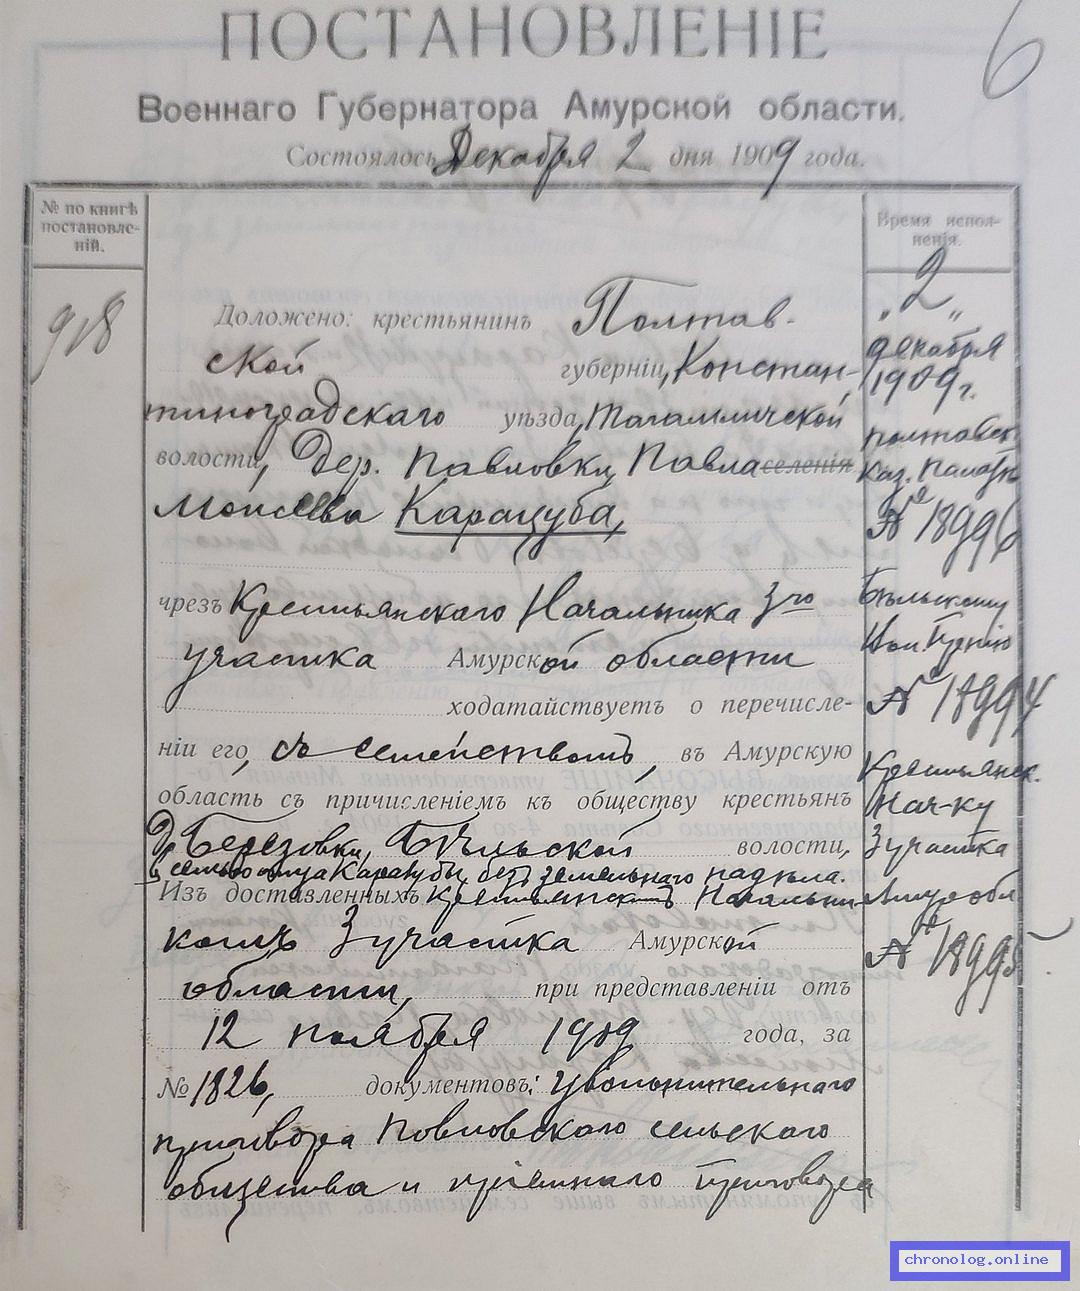 6
ПОСТАНОВЛЕНІЕ
Военнаго Губернатора Амурской области.
Состоялось Декабря 2 дня 1909 года.
№ по книгѣ
постановле-
ній.
918
Доложено: крестьянинъ Полтав-
ской губерніи, Констан-
тиноградскаго уѣзда, Тагамлыкской
волости, Дер. Павловки, Павла селенія
Моисеева Карацуба,
чрезъ Крестьянскаго Начальника 3го
участка Амурской области
ходатайствуетъ о перечисле-
ніи его, съ семействомъ, въ Амурскую
область съ причисленіемъ къ обществу крестьянъ
Д. Березовки, Бѣльской волости,
въ семью отца Карацубы, безъ земельнаго надѣла.
Изъ доставленныхъ Крестьянскимъ Начальни-
комъ 3 участка Амурской
области, при представленіи отъ
12 ноября 1909 года, за
№ 1826, документовъ: увольнительнаго
приговора Павловскаго сельскаго
общества и пріемнаго приговора
Время испол-
ненія.
„2„
декабря
1909 г.
Полтавск.
Каз. Палатѣ
№ 18996
Бѣльскому
Вол. Правленію
№ 18994
Крестьянск.
Нач-ку
3 участка
Амур. обл.
№ 18995
chronolog.online